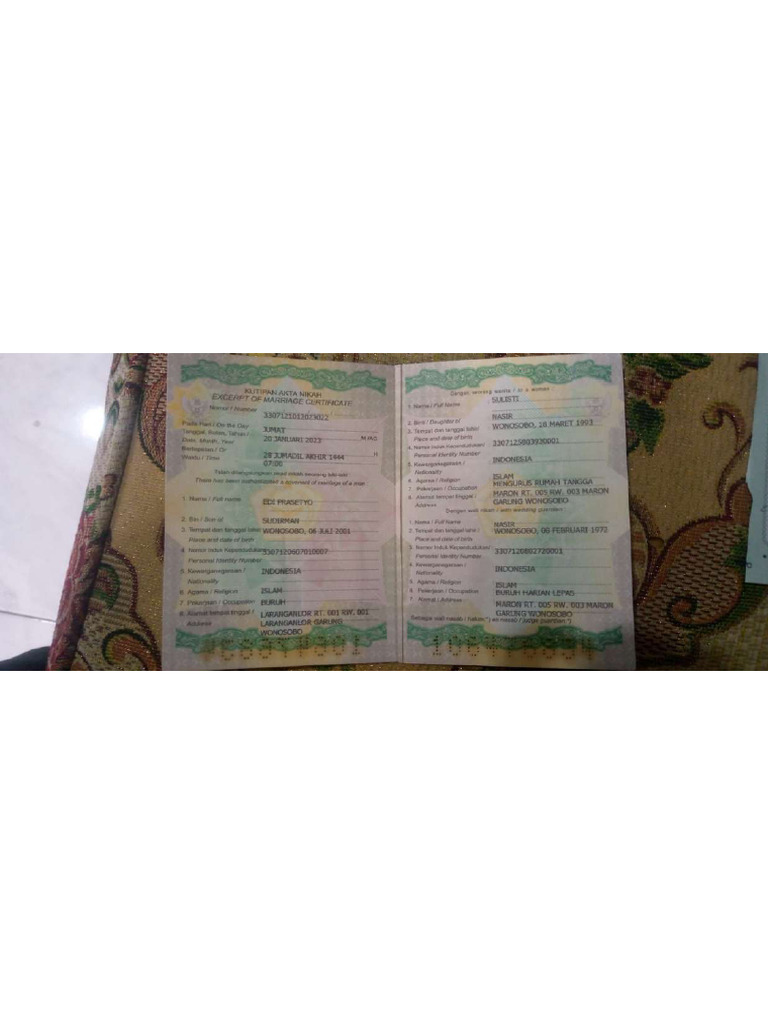 KUTIPAN AKTA NIKAH
EXCERPT OF MARRIAGE CERTIFICATE
Nomor / Number 3307121012023022
Pada Hari / On the Day JUMAT
Tanggal, Bulan, Tahun / 20 JANUARI 2023 M
Date, Month, Year
Bertepatan / Or 28 JUMADIL AKHIR 1444 H
Waktu / Time 07:00
Telah dilangsungkan akad nikah seorang laki-laki
There has been solemnized a of marriage of a man
1. Nama / Full name EDI PRASETYO
2. Bin / Son of SUDIRMAN
3. Tempat dan tanggal lahir/ WONOSOBO, 06 JULI 2001
Place and date of birth
4. Nomor Induk Kependudukan/ 3307120607010007
Personal Identity Number
5. Kewarganegaraan / INDONESIA
Nationality
6. Agama / Religion ISLAM
7. Pekerjaan / Occupation BURUH
8. Alamat tempat tinggal / LARANGANLOR RT. 001 RW. 001
Address LARANGANLOR GARUNG
WONOSOBO
Dengan seorang wanita / to a woman :
1. Nama / Full Name SULISTI
2. Binti / Daughter of NASIR
3. Tempat dan tanggal lahir/ WONOSOBO, 18 MARET 1993
Place and date of birth
4. Nomor Induk Kependudukan/ 3307125803930001
Personal Identity Number
5. Kewarganegaraan / INDONESIA
Nationality
6. Agama / Religion ISLAM
7. Pekerjaan / Occupation MENGURUS RUMAH TANGGA
8. Alamat tempat tinggal / MARON RT. 005 RW. 003 MARON
Address GARUNG WONOSOBO
Dengan wali nikah / with wedding guardian :
1. Nama / Full Name NASIR
2. Tempat dan tanggal lahir / WONOSOBO, 08 FEBRUARI 1972
Place and date of birth
3. Nomor Induk Kependudukan/ 3307120802720001
Personal Identity Number
4. Kewarganegaraan / INDONESIA
Nationality
5. Agama / Religion ISLAM
6. Pekerjaan / Occupation BURUH HARIAN LEPAS
7. Alamat / Address MARON RT. 005 RW. 003 MARON
GARUNG WONOSOBO
Sebagai wali nasab / hakim *) as nasab / judge guardian *)